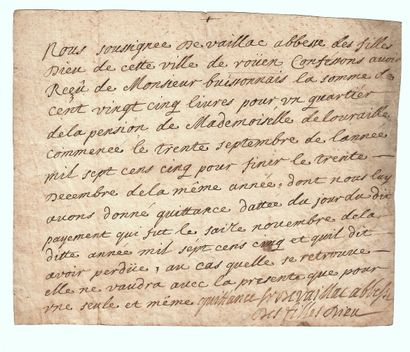 Nous soussignee De vaillac abbesse des filles
Dieu de cette ville de roüen Confessons avoir
Reçû de Monsieur buissonnais la somme de
cent vingt cinq livres pour vn quartier
de la pension de Mademoiselle delouraille
commence le trente septembre de lannee
mil sept cens cinq pour finir le trente
Decembre de la même année, dont nous luy
avons donne quittance dattee du jour du dit
payement qui fut le saize novembre dela
ditte année mil sept cens cinq et quil dit
avoir perdüe, au cas quelle se retrouve
elle ne vaudra avec la presente que pour
vne seule et même quittance De vaillac abbesse
des filles dieu